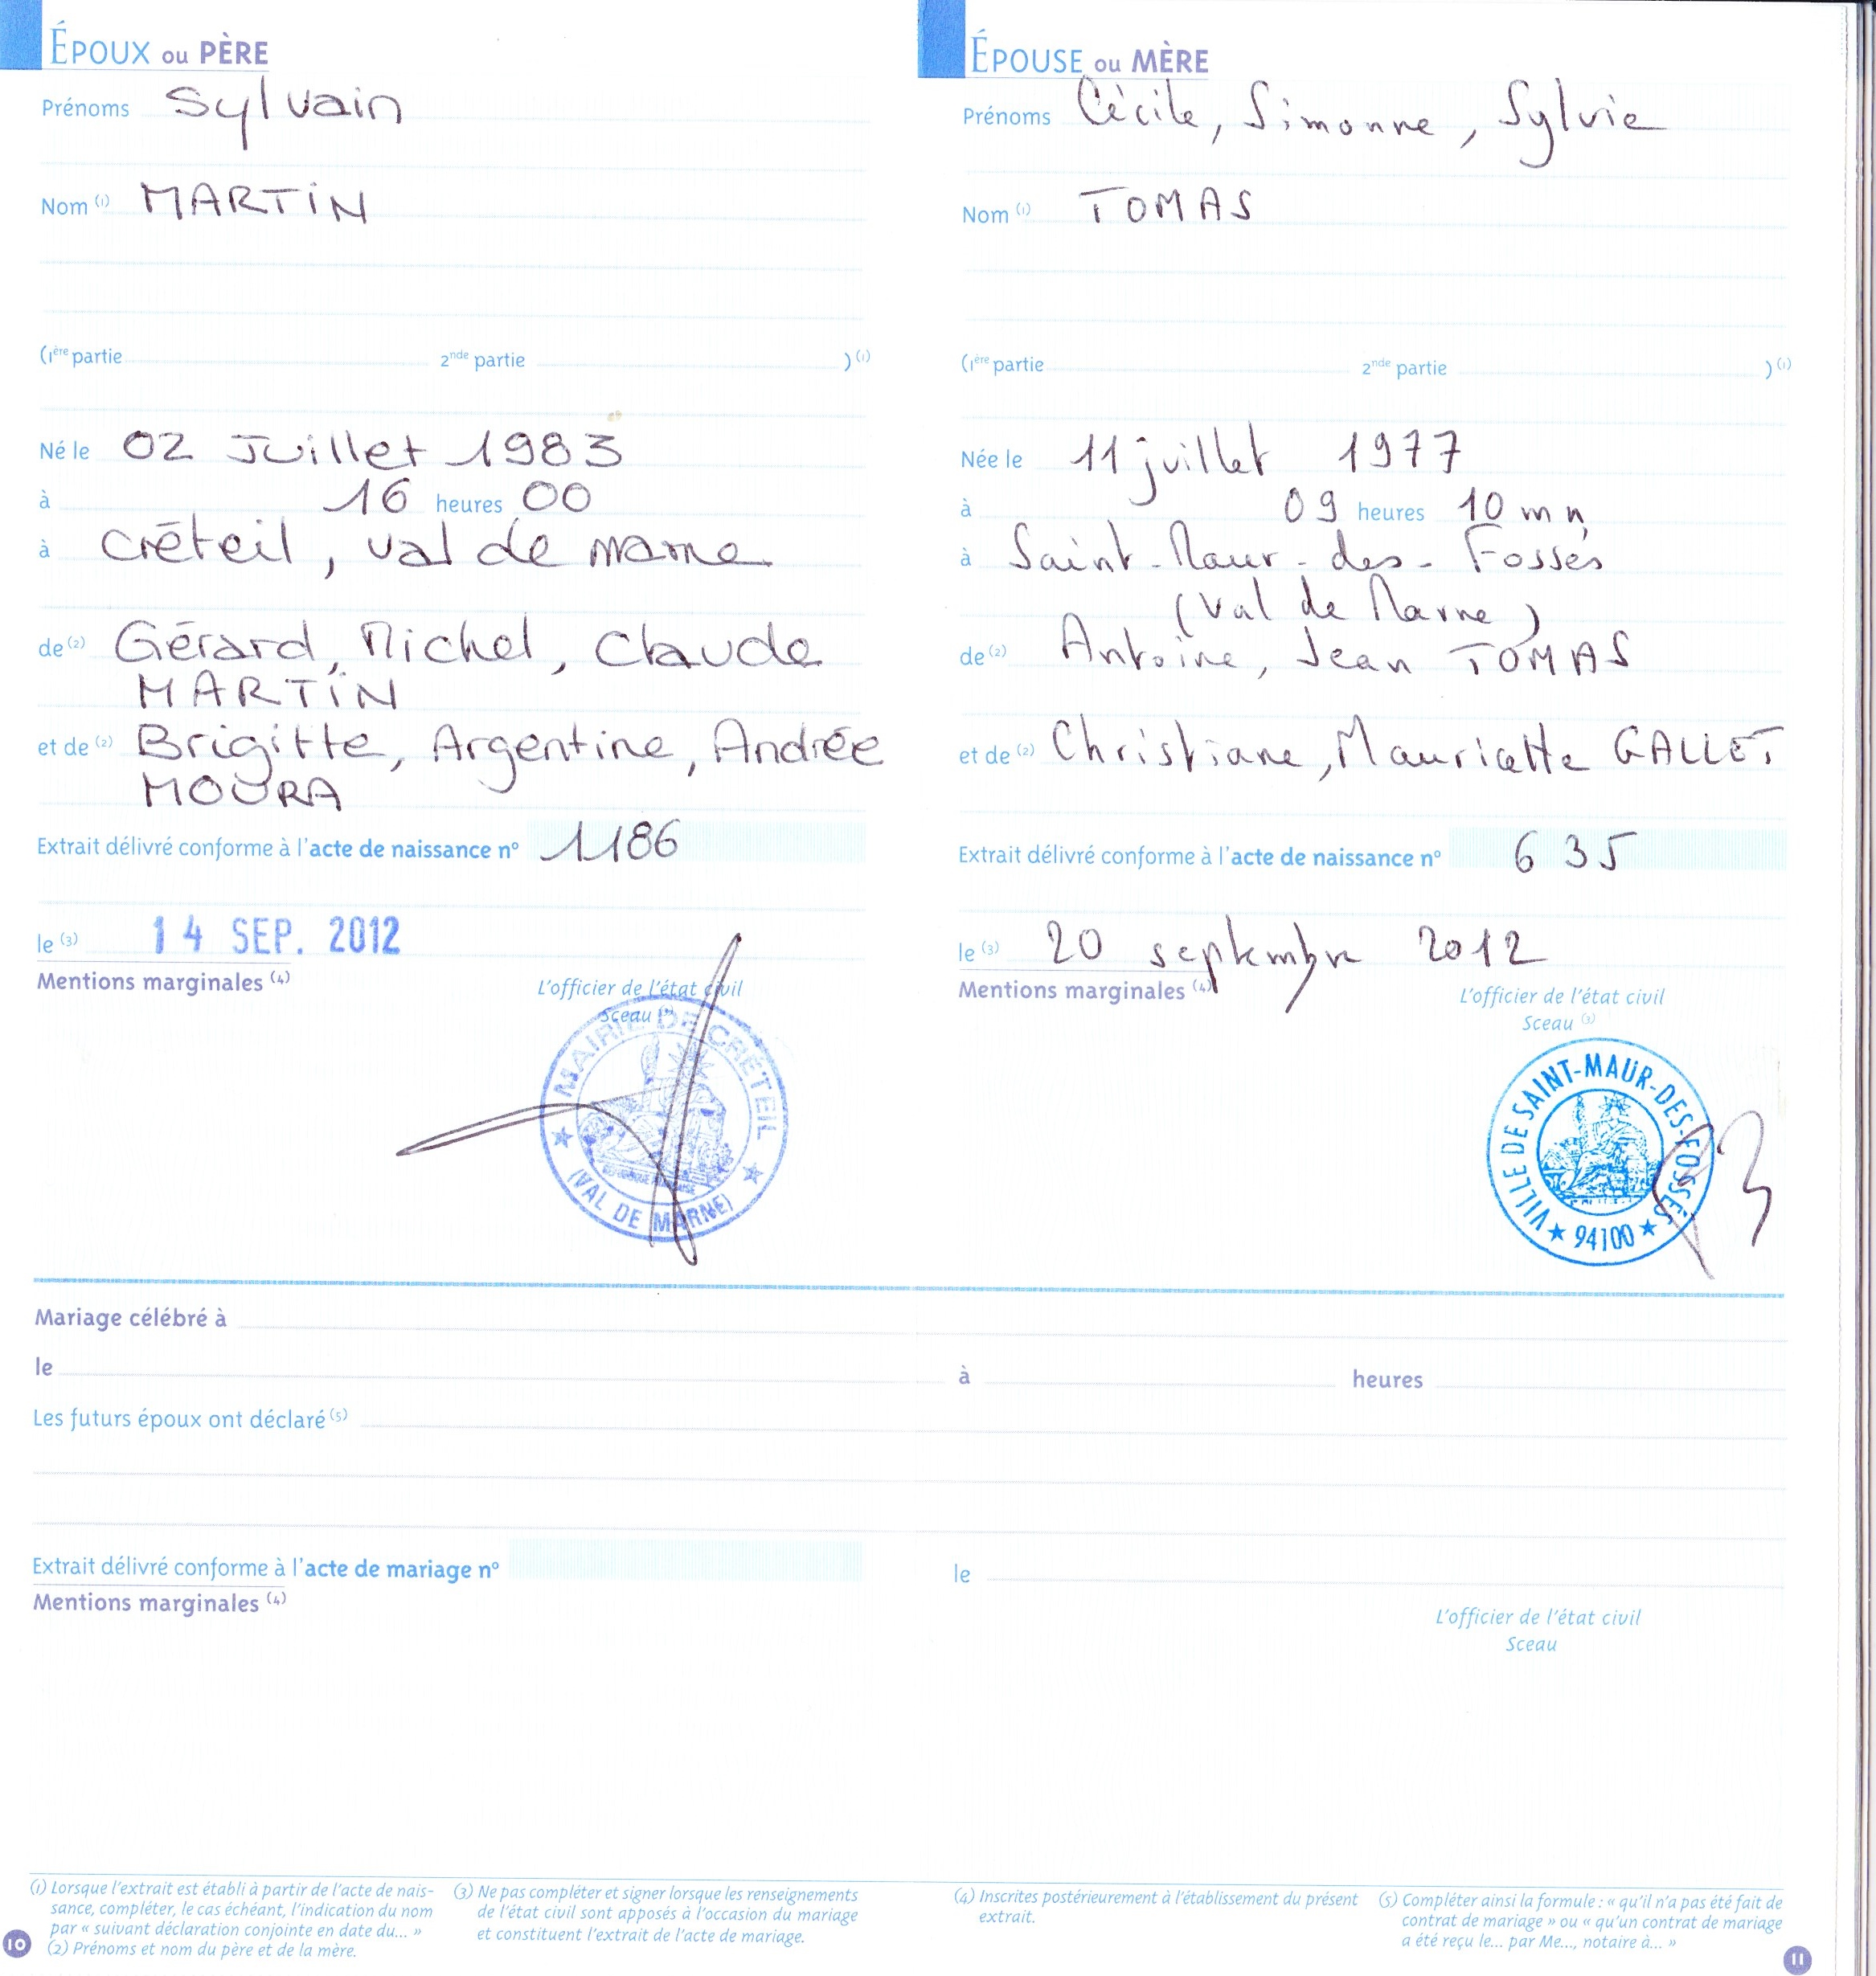 ÉPOUX ou PÈRE
Prénoms Sylvain
Nom (1) MARTIN
(1ère partie 2nde partie ) (1)
Né le 02 Juillet 1983
à 16 heures 00
à Créteil, val de marne
de (2) Gérard, Michel, Claude
MARTIN
et de (2) Brigitte, Argentine, Andrée
MOURA
Extrait délivré conforme à l'acte de naissance n° 1186
le (3) 14 SEP. 2012
Mentions marginales (4)
L'officier de l'état civil
Sceau (3)
MAIRIE DE CRÉTEIL
(VAL DE MARNE)
ÉPOUSE ou MÈRE
Prénoms Cécile, Simonne, Sylvie
Nom (1) TOMAS
(1ère partie 2nde partie ) (1)
Née le 11 juillet 1977
à 09 heures 10 mn
à Saint-Maur-des-Fossés
(Val de Marne)
de (2) Antoine, Jean TOMAS
et de (2) Christiane, Mauricette GALLET
Extrait délivré conforme à l'acte de naissance n° 635
le (3) 20 septembre 2012
Mentions marginales (4)
L'officier de l'état civil
Sceau (3)
VILLE DE SAINT-MAUR-DES-FOSSÉS
94100
Mariage célébré à
le à heures
Les futurs époux ont déclaré (5)
Extrait délivré conforme à l'acte de mariage n° le
Mentions marginales (4)
L'officier de l'état civil
Sceau
(1) Lorsque l'extrait est établi à partir de l'acte de nais-
sance, compléter, le cas échéant, l'indication du nom
par « suivant déclaration conjointe en date du... »
(2) Prénoms et nom du père et de la mère.
(3) Ne pas compléter et signer lorsque les renseignements
de l'état civil sont apposés à l'occasion du mariage
et constituent l'extrait de l'acte de mariage.
(4) Inscrites postérieurement à l'établissement du présent
extrait.
(5) Compléter ainsi la formule : « qu'il n'a pas été fait de
contrat de mariage » ou « qu'un contrat de mariage
a été reçu le... par Me..., notaire à... »
10
11